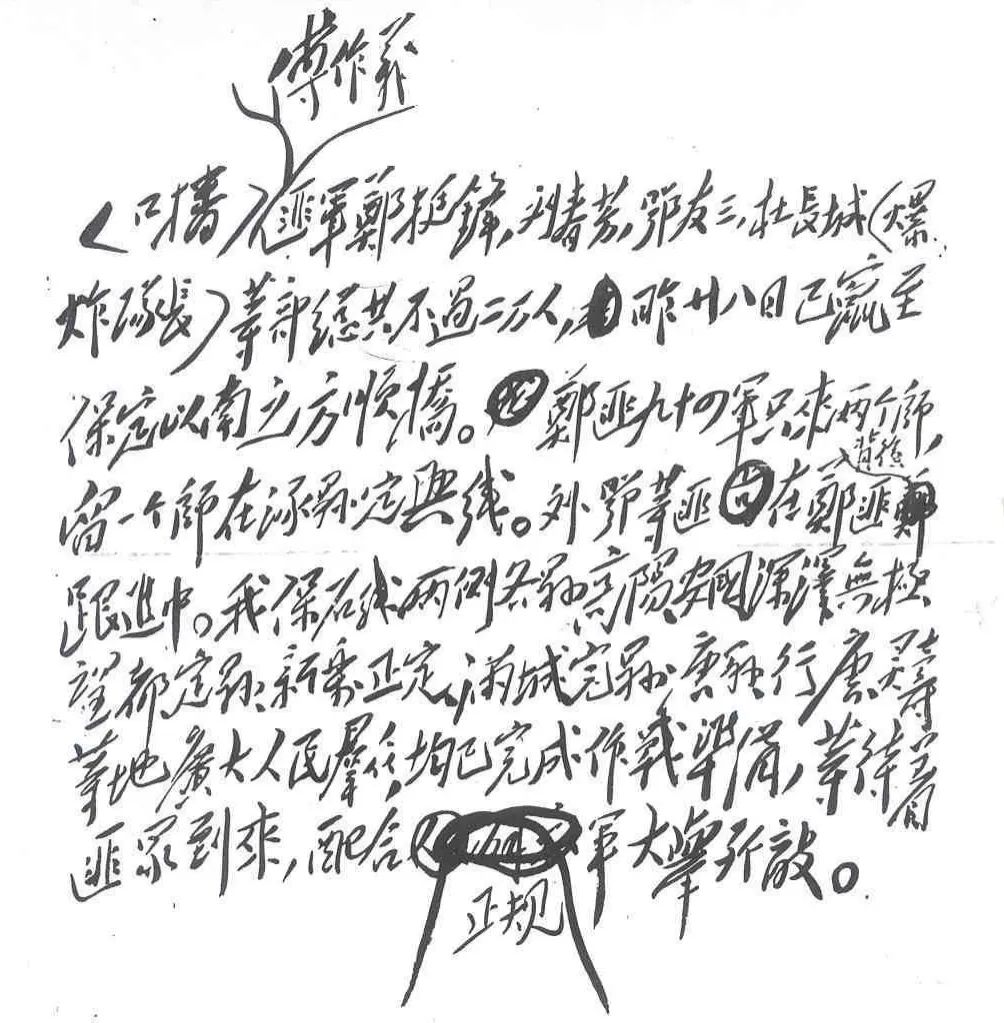 傅作義
（口播）匪軍鄭挺鋒，刘春芳，鄂友三，杜長城（爆
炸隊長）等部總共不過二万人，昨廿八日已竄至
保定以南之方順橋。鄭匪九十四軍只來两个師，
背後
留一个師在涿縣定興线。刘鄂等匪在鄭匪
跟進中。我保石线两側各縣高陽安國深澤無極
望都定縣新樂正定，满城完縣唐縣行唐灵壽
等地廣大人民羣众，均已完成作戰準備，等待着
匪軍到來，配合軍大舉歼敵。
正规